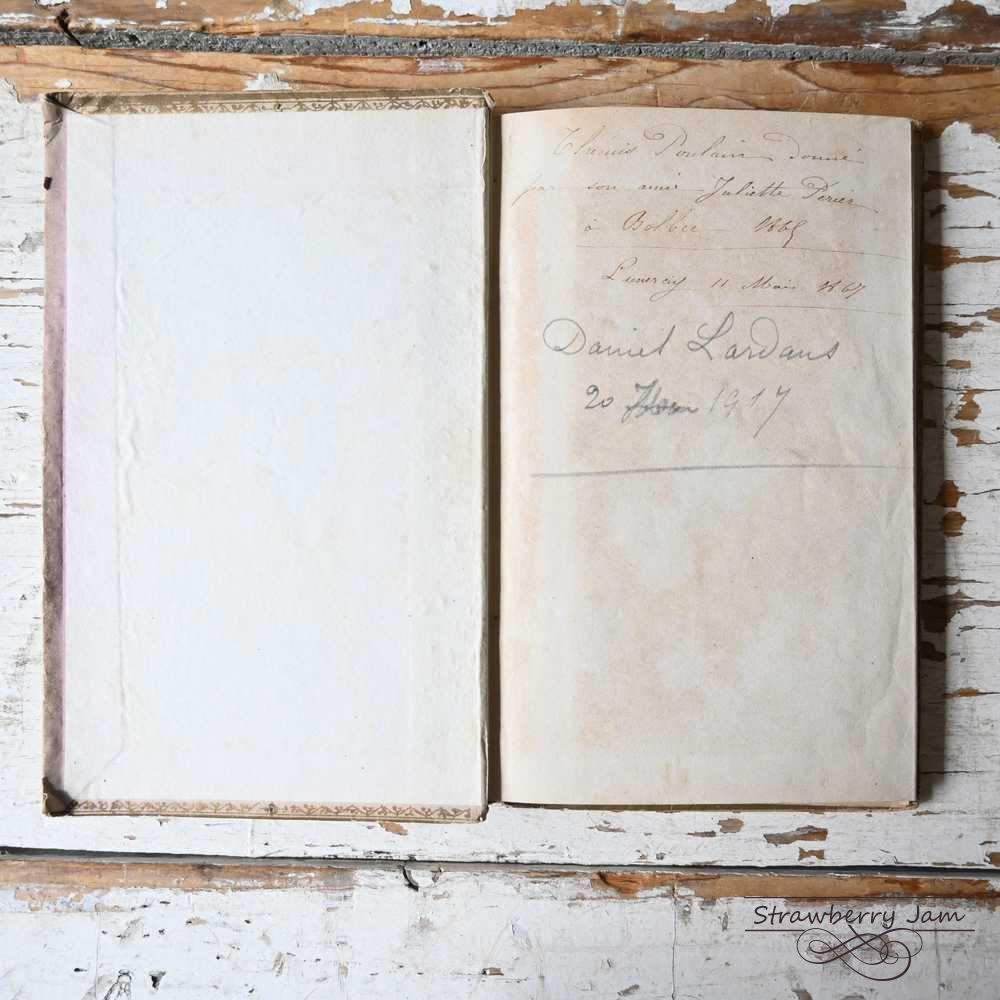 Poulain donné
par son amie Juliette Périer
à Bolbec 1865
Luneray 11 Mai 1867
Daniel Lardans
20 1917
Strawberry Jam